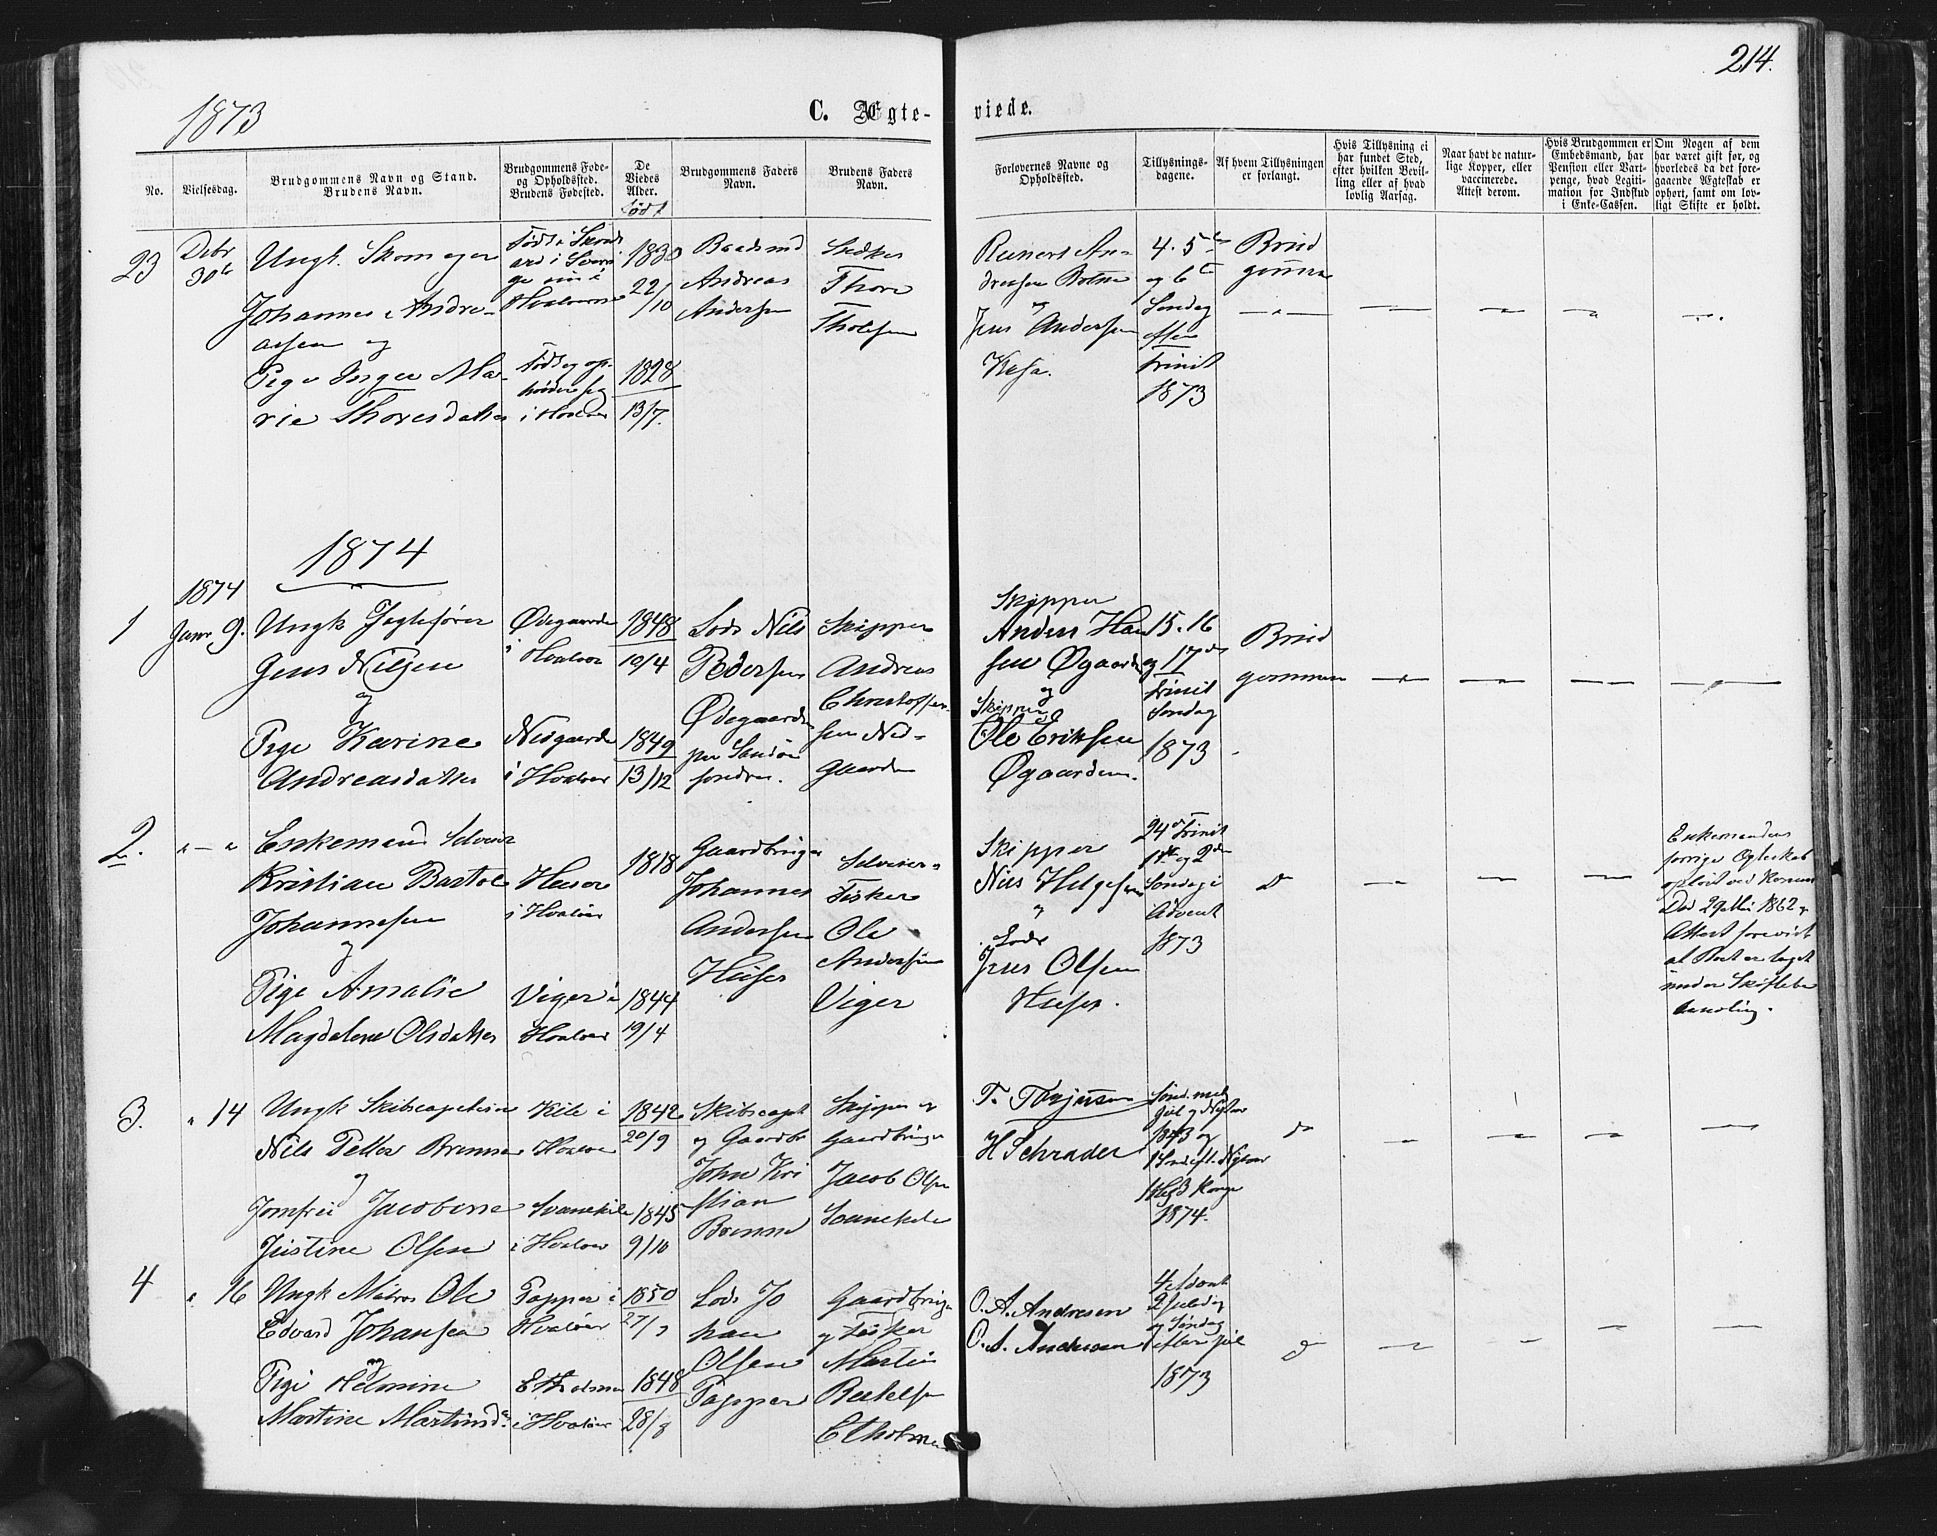 214.
1873
C. Ægte-
viede.
No.
Vielsesdag.
Brudgommens Navn og Stand.
Brudens Navn.
Brudgommens Føde-
og Opholdssted.
Brudens Fødested.
De
Viedes
Alder.
Født
Brudgommens Faders
Navn.
Brudens Faders
Navn.
Forlovernes Navne og
Opholdssted.
Tillysnings-
dagene.
Af hvem Tillysningen
er forlangt.
Hvis Tillysning ei
har fundet Sted,
efter hvilken Bevil-
ling eller af hvad
lovlig Aarsag.
Naar havt de natur-
lige Kopper, eller
vaccinerede.
Attest derom.
Hvis Brudgommen er
Embedsmand, har
Pension eller Vart-
penge, hvad Legiti-
mation for Indskud
i Enke-Cassen.
Om Nogen af dem
har været gift før, og
hvorledes da det fore-
gaaende Ægteskab er
ophørt, samt om lov-
ligt Skifte er holdt.
23
Debr
30te
Ungk. Skomager
Johannes Andre-
assen og
Pige Inger Ma-
rie Thoresdatter
Hvaløerne
Født og op-
i Hvaløer
1830
22/10
1828
13/7.
Baadsmd
Andreas
Andersen
Thore
Reinert An-
dreasen
og
Jens Andersen
4. 5te
og 6te
Søndag
efter
trinit
1873
Brud
gommen
1874
1
1874
Janr 9.
Ungk Jagtefører
Jens Nilsen
og
Pige Karine
Andreasdatter
Ødegaarden
i Hvaløer
Nedgaarden
i Hvaløer
1848
19/4
1849
13/12
Lods Nils
Pedersen
Ødegaarden
Skipper
Andreas
Christoffer-
sen Ned-
gaarden
Skipper
Anders Han
sen Øgaarden
og
Skipper
Ole Eriksen
Øgaarden.
15. 16
og 17de
trinit
Søndag
1873
Brud
gommen
2.
Enkemand
Kristian Bartol
Johannesen
og
Pige Amalie
Magdalene Olsdatter
i Hvaløer
Viger i
Hvaløer
1818
1844
19/4
Gaardbruger
Johannes
Andersen
Huser
Selveier-
Fisker
Ole
Andersen
Viger
Skipper
Nils Helgesen
og
Lods
Jens Olsen
Huser.
24de Trinit
1ste og 2den
Søndag i
Advent
1873
Do
Enkemandens
forrige Ægteskab
opløst ved Konens
Død 29 Mai 1862
Attest forevist
at Boet er taget
under Skiftebe
handling.
3.
" 14
Ungk Skibscaptein
Nils Petter Brenne
og
Jomfru Jacobine
Justine Olsen
Kile i
Hvaløer
Svanekile
i Hvaløer
1842
20/9
1845
9/10
Skibscapt
og Gaardbr
John Kri
stian
Brenne
Skipper og
Gaardbruger
Jacob Olsen
Svanekile
T. Torjusen
H Schrader
Sønd. mel
Jul og Nytaar
1873 og
1874.
do
4
" 16
Ungk Matros Ole
Edvard Johansen
og
Pige Helmine
Martine Martinsd.
Papper i
Hvaløer
Etholmen
i Hvaløer
1850
1848
28/8
Lods Jo
han
Olsen
Papper
Gaardbruger
og Fisker
Martin
Etholmen
O. A. Andresen
O. A. Andresen
4 Advent
2 Juledag
og Søndag
efter Jul
1873
do